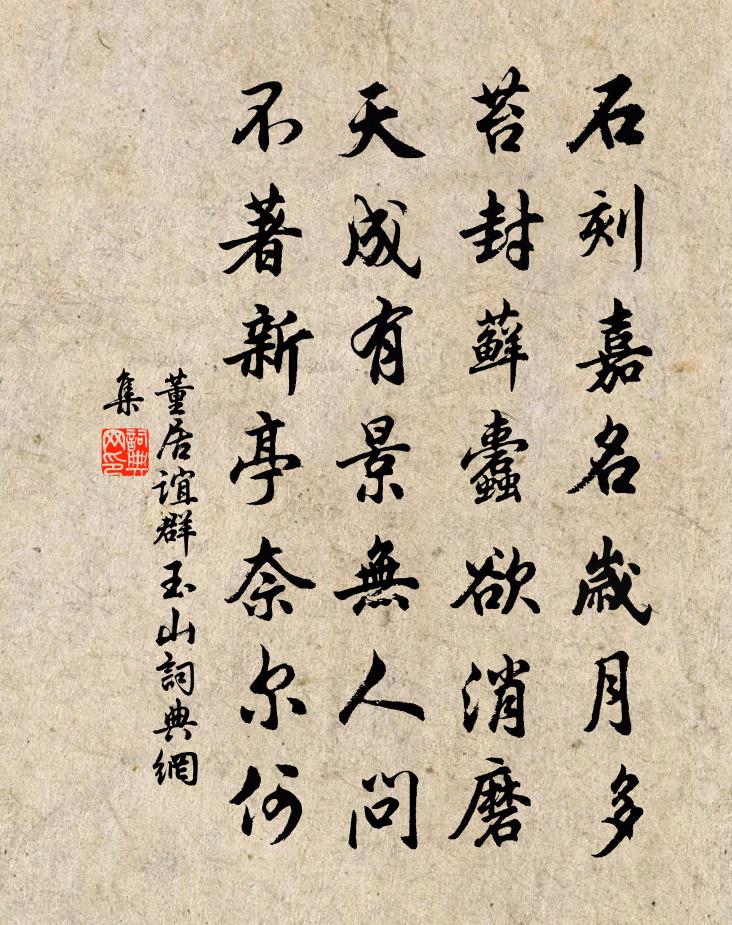 石刻嘉名歲月多
苔封蘚蠹欲消磨
天成有景無人問
不著新亭奈尔何
董居誼群玉山詞典網
集
詞典
网印